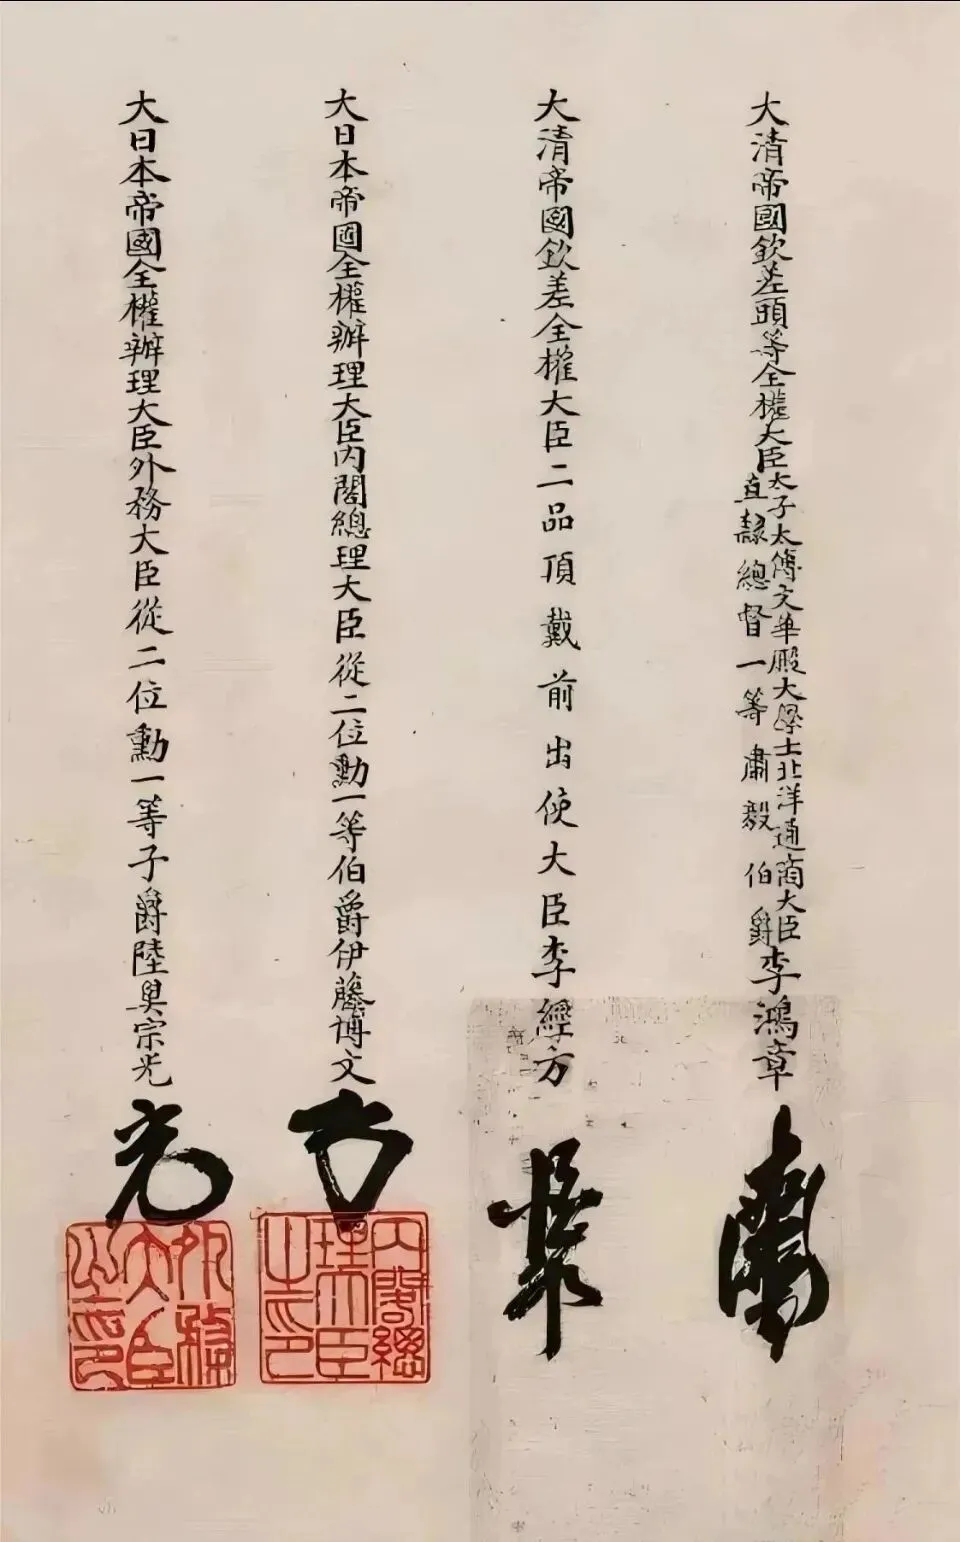 大清帝國欽差頭等全權大臣太子太傅文華殿大學士北洋通商大臣
直隸總督一等肅毅伯爵李鴻章
大清帝國欽差全權大臣二品頂戴前出使大臣李經方
大日本帝國全權辦理大臣內閣總理大臣從二位勳一等伯爵伊藤博文
內閣總
理大臣
之印
大日本帝國全權辦理大臣外務大臣從二位勳一等子爵陸奥宗光
外務
大臣
之印